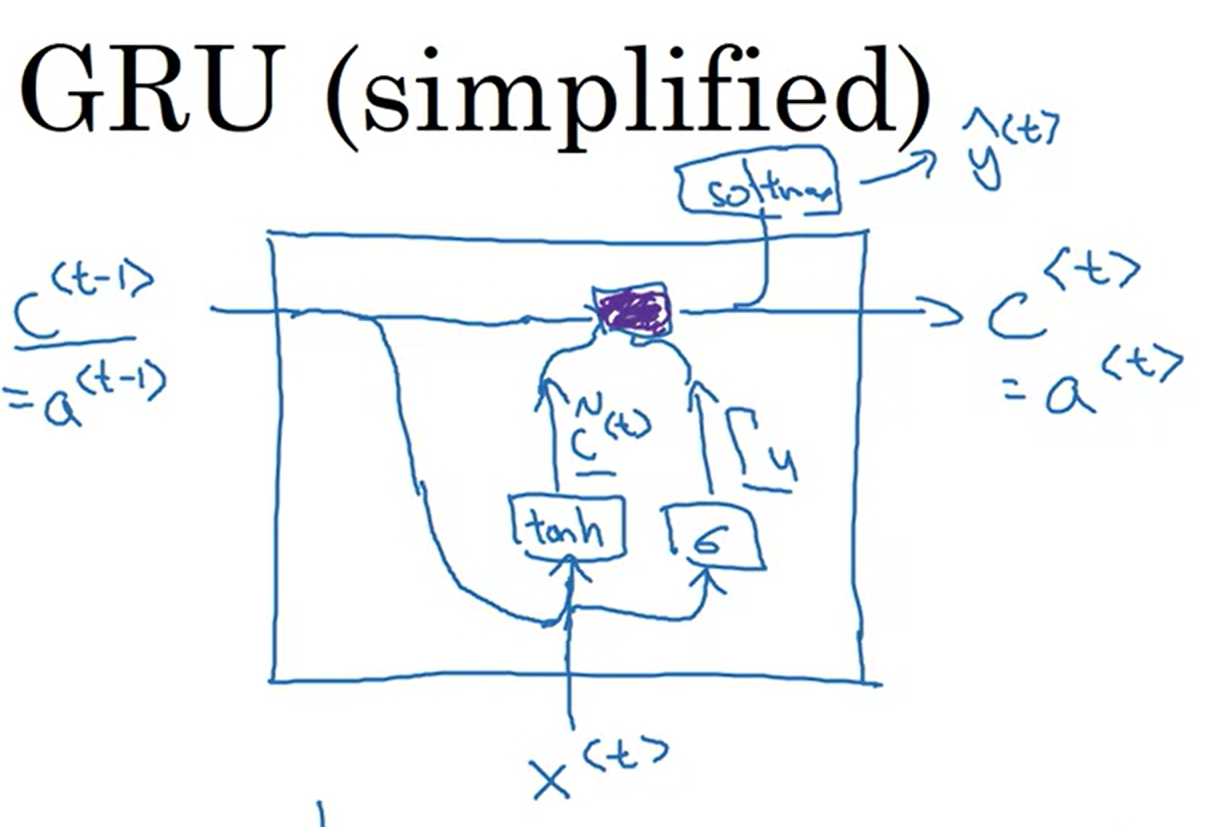 GRU (simplified)
softmax
ŷ<t>
c<t-1>
= a<t-1>
c<t>
= a<t>
c̃<t>
Γu
tanh
σ
x<t>